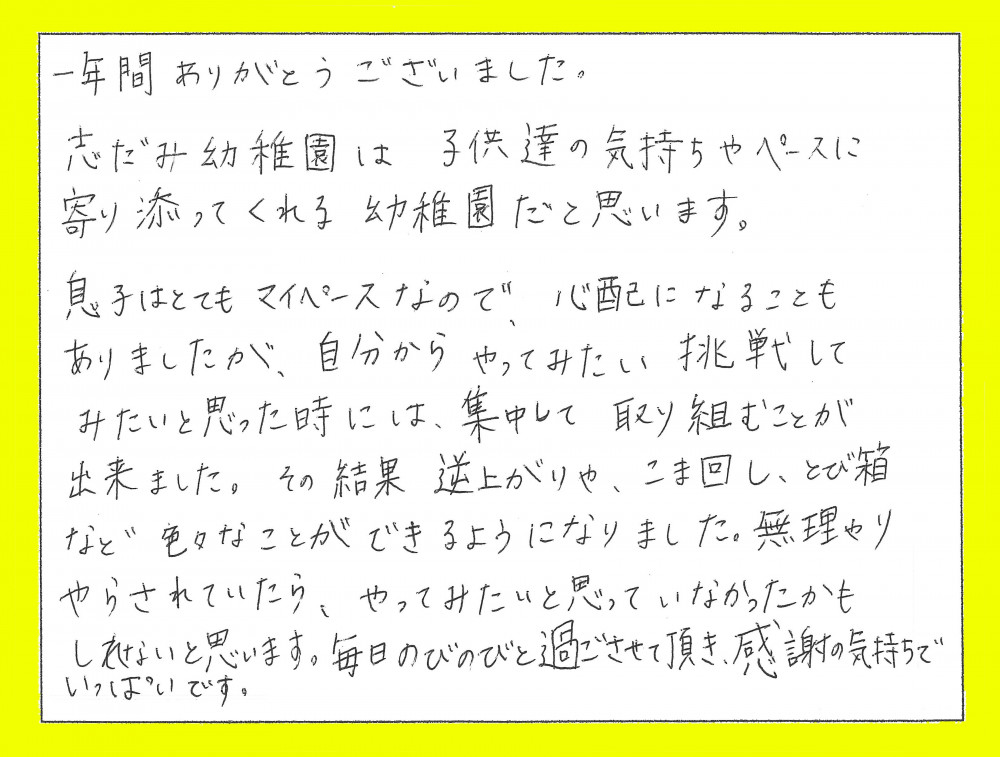 一年間ありがとうございました。
志だみ幼稚園は 子供達の気持ちやペースに
寄り添ってくれる 幼稚園だと思います。
息子はとてもマイペースなので、心配になることも
ありましたが、自分からやってみたい 挑戦して
みたいと思った時には、集中して 取り組むことが
出来ました。その結果 逆上がりや、こま回し、とび箱
など色々なことができるようになりました。無理やり
やらされていたら、やってみたいと思っていなかったかも
しれないと思います。毎日のびのびと過ごさせて頂き、感謝の気持ちで
いっぱいです。